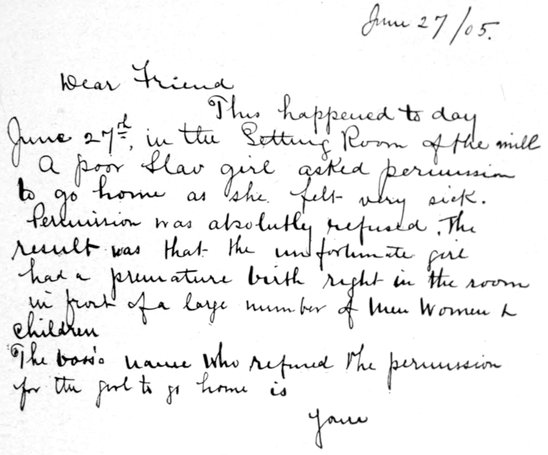 June 27/05.
Dear Friend
This happened to day
June 27th, in the Setting Room of the mill
A poor Slav girl asked permission
to go home as she felt very sick.
Permission was absolutly refused. The
result was that the unfortunate girl
had a premature birth right in the room
in front of a large number of Men Women &
children
The boss's name who refused the permission
for the girl to go home is
Yours